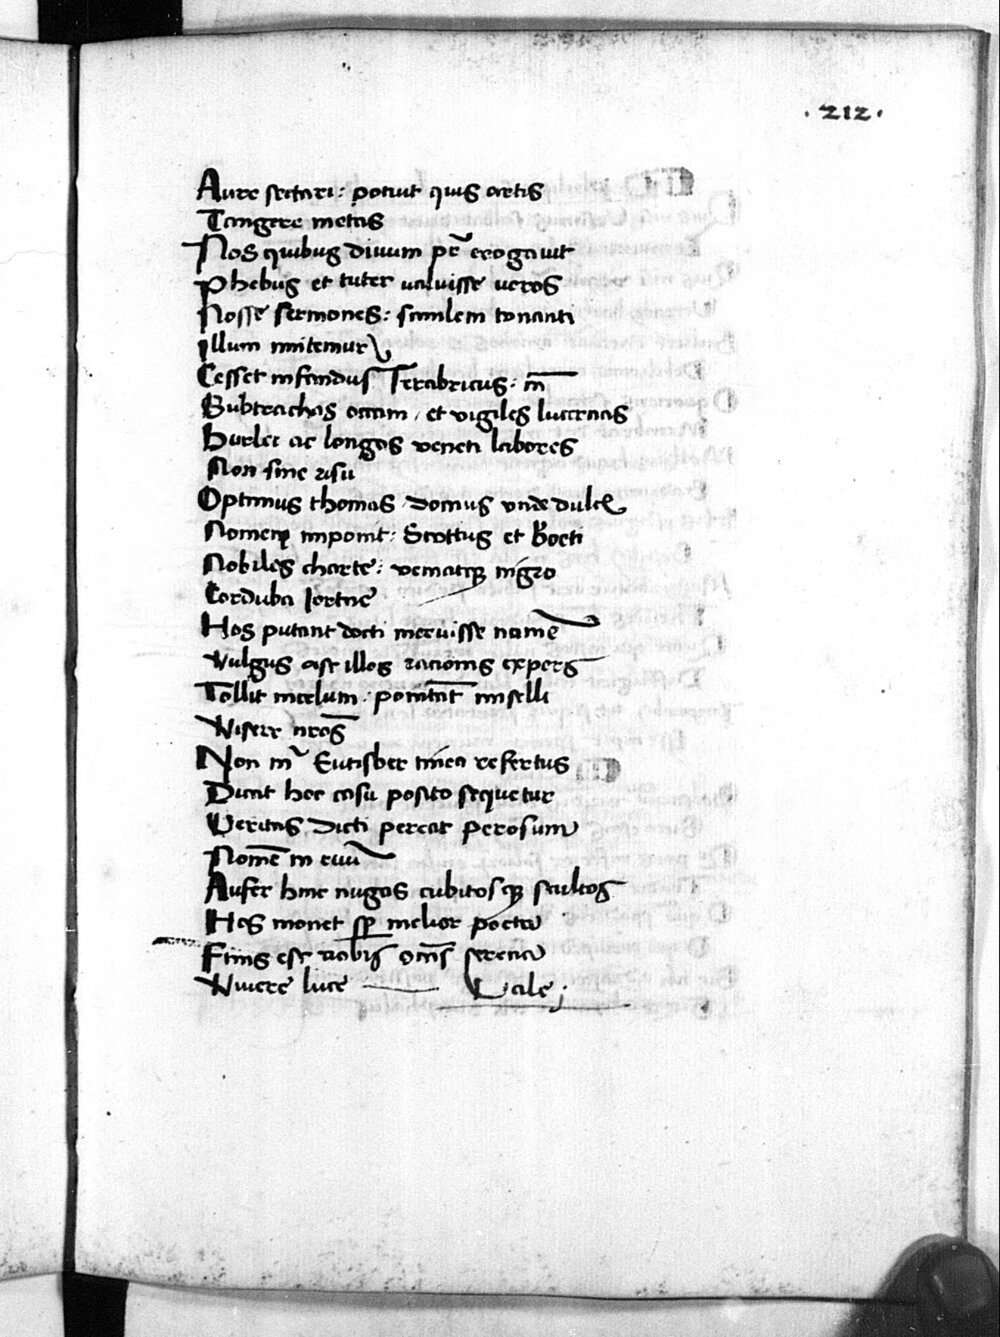 · 212 ·
Aure sectari : potuit quis artis
Tangere metas
Nos quibus diuum pr̄ erogauit
Phebus et tuter ualuisse ueros
Nosse sermones : similem tonanti
Illum mitemur
Cesset infandus Terabricus : in̄
Subtrachas ocam / et vigiles lucernas
Hurlei ac longos veneti labores
Non sine risu
Optimus thomas domus vnde dulce
Nomenqꝫ imponit : Scottus et Boeti
Nobiles charte : vematqꝫ nigro
Corduba
Hos putant docti meruisse namē
Vulgus ast illos racionis expers
Tollit incelum : ponitāt miselli
Visere nr̄os
Non m̄ Eutisber tinea refertus
Dicat hec casu posito sequetur
Veritas dicti pereat perosum
Nomē in euū
Aufer hinc nugas cubitosqꝫ stultos
Hos monet sꝑ melior poeta
Finis est nobis om̄s serena
Viuere luce Vale ;